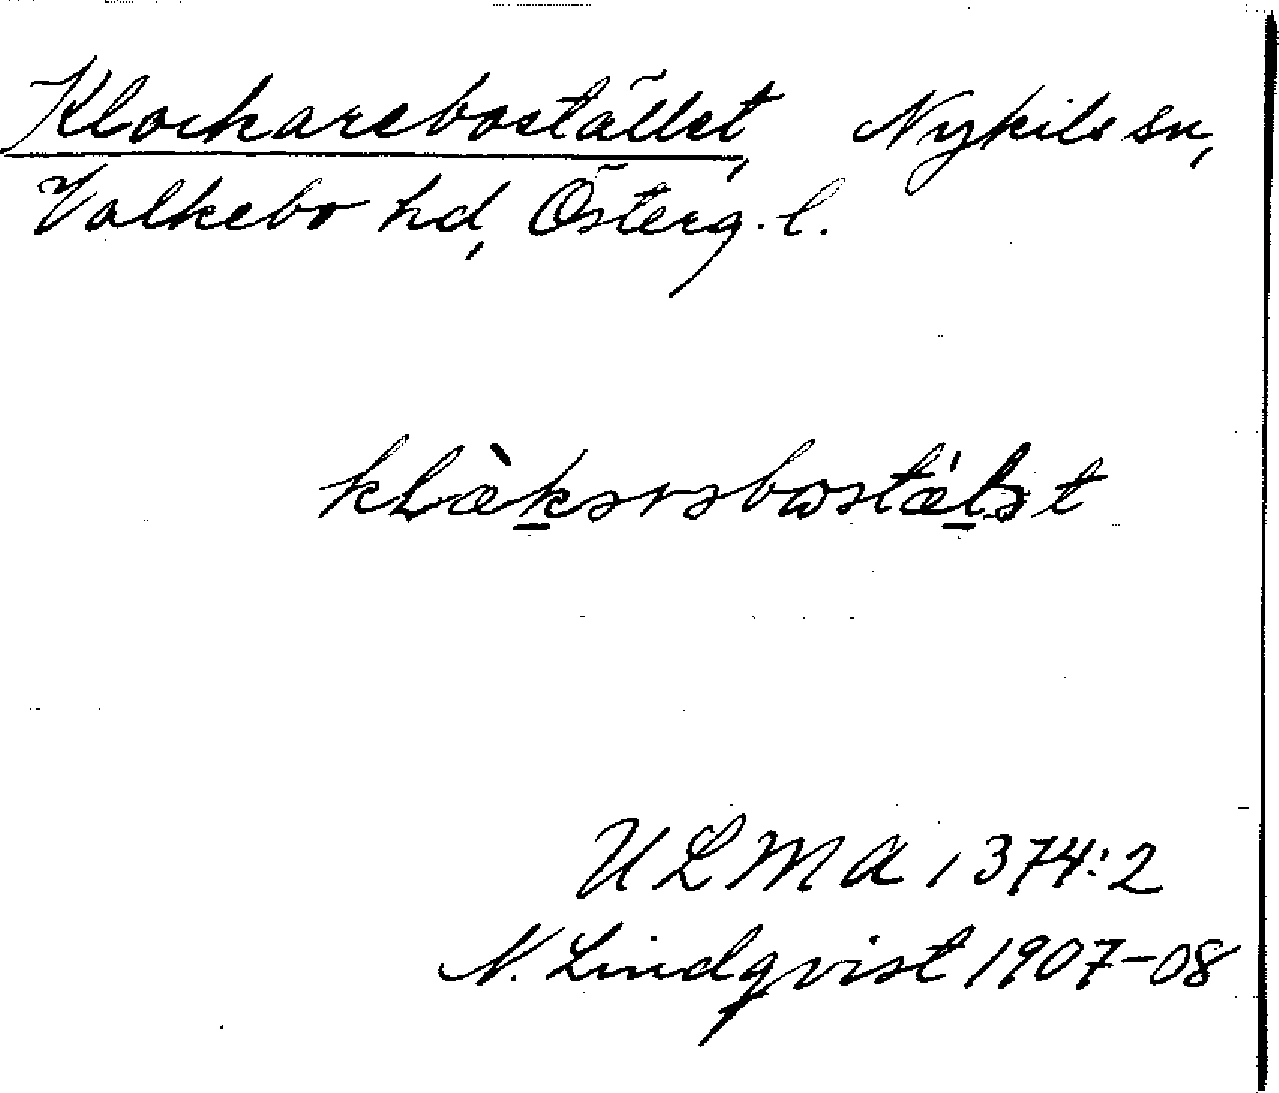 Klockarebostället, Nykils sn,
Valkebo hd, Österg. l.
klæ̀kərəbωstǽlət
ULMA 1374:2
N. Lindqvist 1907-08